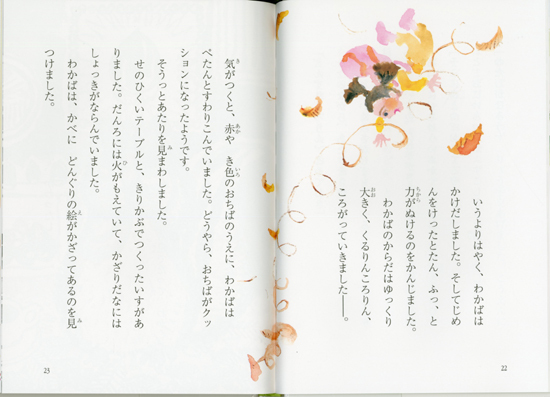 いうよりはやく、わかばは
かけだしました。そしてじめ
んをけったとたん、ふっ、と
力がぬけるのをかんじました。
わかばのからだはゆっくり
大きく、くるりんころりん、
ころがっていきました――。
22
気がつくと、赤や き色のおちばのうえに、わかばは
ぺたんとすわりこんでいました。どうやら、おちばがクッ
ションになったようです。
そうっとあたりを見まわしました。
せのひくいテーブルと、きりかぶでつくったいすがあ
りました。だんろには火がもえていて、かざりだなには
しょっきがならんでいました。
わかばは、かべに どんぐりの絵がかざってあるのを見
つけました。
23